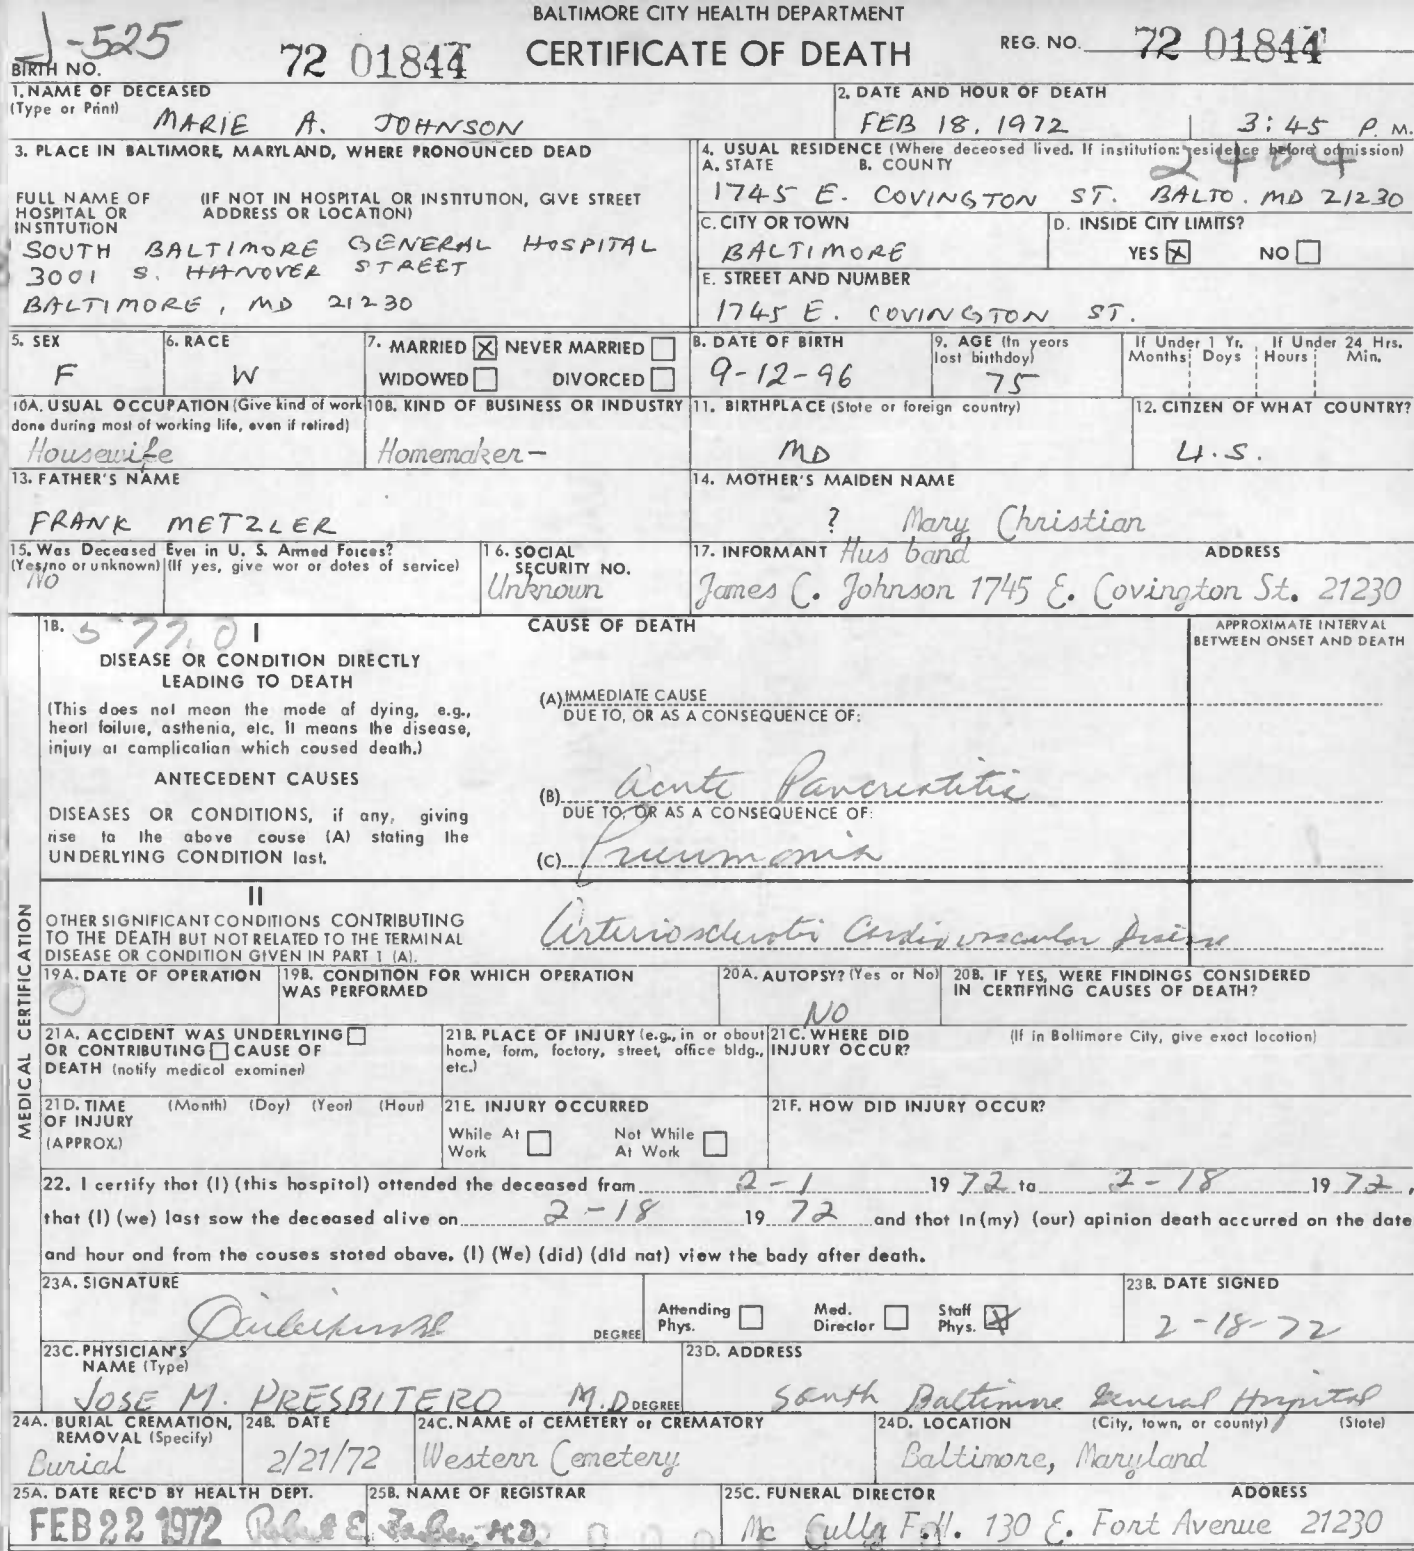 BALTIMORE CITY HEALTH DEPARTMENT
J-525
BIRTH NO.
72 01844
CERTIFICATE OF DEATH
REG. NO. 72 01844
1. NAME OF DECEASED
(Type or Print)
MARIE A. JOHNSON
2. DATE AND HOUR OF DEATH
FEB 18, 1972 3:45 P. M.
3. PLACE IN BALTIMORE, MARYLAND, WHERE PRONOUNCED DEAD
FULL NAME OF HOSPITAL OR INSTITUTION
(IF NOT IN HOSPITAL OR INSTITUTION, GIVE STREET ADDRESS OR LOCATION)
SOUTH BALTIMORE GENERAL HOSPITAL
3001 S. HANOVER STREET
BALTIMORE, MD 21230
4. USUAL RESIDENCE (Where deceased lived. If institution: residence before admission)
2404
A. STATE B. COUNTY
1745 E. COVINGTON ST. BALTO. MD 21230
C. CITY OR TOWN
BALTIMORE
D. INSIDE CITY LIMITS?
YES X NO
E. STREET AND NUMBER
1745 E. COVINGTON ST.
5. SEX
F
6. RACE
W
7. MARRIED X NEVER MARRIED
WIDOWED DIVORCED
8. DATE OF BIRTH
9-12-96
9. AGE (In years last birthday)
75
If Under 1 Yr. Months Days
If Under 24 Hrs. Hours Min.
10A. USUAL OCCUPATION (Give kind of work done during most of working life, even if retired)
Housewife
10B. KIND OF BUSINESS OR INDUSTRY
Homemaker-
11. BIRTHPLACE (State or foreign country)
MD
12. CITIZEN OF WHAT COUNTRY?
U.S.
13. FATHER'S NAME
FRANK METZLER
14. MOTHER'S MAIDEN NAME
? Mary Christian
15. Was Deceased Ever in U. S. Armed Forces?
(Yes, no or unknown) (If yes, give war or dates of service)
NO
16. SOCIAL SECURITY NO.
Unknown
17. INFORMANT Hus band ADDRESS
James C. Johnson 1745 E. Covington St. 21230
MEDICAL CERTIFICATION
18. 577.0 I
DISEASE OR CONDITION DIRECTLY
LEADING TO DEATH
(This does not mean the mode of dying, e.g.,
heart failure, asthenia, etc. It means the disease,
injury or complication which caused death.)
ANTECEDENT CAUSES
DISEASES OR CONDITIONS, if any, giving
rise to the above cause (A) stating the
UNDERLYING CONDITION last.
CAUSE OF DEATH
APPROXIMATE INTERVAL
BETWEEN ONSET AND DEATH
(A) IMMEDIATE CAUSE
DUE TO, OR AS A CONSEQUENCE OF:
(B) Acute Pancreatitis
DUE TO, OR AS A CONSEQUENCE OF:
(C) Pneumonia
II
OTHER SIGNIFICANT CONDITIONS CONTRIBUTING
TO THE DEATH BUT NOT RELATED TO THE TERMINAL
DISEASE OR CONDITION GIVEN IN PART 1 (A).
Arteriosclerotic Cardiovascular Disease
19A. DATE OF OPERATION
0
19B. CONDITION FOR WHICH OPERATION
WAS PERFORMED
20A. AUTOPSY? (Yes or No)
NO
20B. IF YES, WERE FINDINGS CONSIDERED
IN CERTIFYING CAUSES OF DEATH?
21A. ACCIDENT WAS UNDERLYING
OR CONTRIBUTING CAUSE OF
DEATH (notify medical examiner)
21B. PLACE OF INJURY (e.g., in or about
home, farm, factory, street, office bldg.,
etc.)
21C. WHERE DID INJURY OCCUR?
(If in Baltimore City, give exact location)
21D. TIME OF INJURY (APPROX.)
(Month) (Day) (Year) (Hour)
21E. INJURY OCCURRED
While At Work Not While At Work
21F. HOW DID INJURY OCCUR?
22. I certify that (I) (this hospital) attended the deceased from 2-1 1972 to 2-18 1972,
that (I) (we) last saw the deceased alive on 2-18 1972 and that in (my) (our) opinion death occurred on the date
and hour and from the causes stated above. (I) (We) (did) (did not) view the body after death.
23A. SIGNATURE
DEGREE
Attending Phys. Med. Director Staff Phys. X
23B. DATE SIGNED
2-18-72
23C. PHYSICIAN'S NAME (Type)
JOSE M. PRESBITERO M.D DEGREE
23D. ADDRESS
South Baltimore General Hospital
24A. BURIAL CREMATION, REMOVAL (Specify)
Burial
24B. DATE
2/21/72
24C. NAME of CEMETERY or CREMATORY
Western Cemetery
24D. LOCATION (City, town, or county) (State)
Baltimore, Maryland
25A. DATE REC'D BY HEALTH DEPT.
FEB 22 1972
25B. NAME OF REGISTRAR
Robert E. Farber, M.D.
25C. FUNERAL DIRECTOR ADDRESS
Mc Cully F.H. 130 E. Fort Avenue 21230